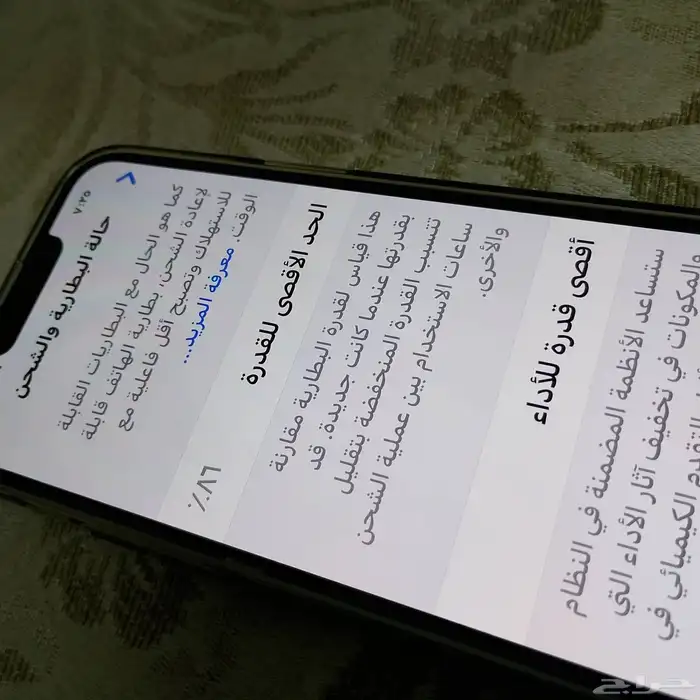 ٧:٢٥
حالة البطارية والشحن
كما هو الحال مع البطاريات القابلة
لإعادة الشحن، بطارية الهاتف قابلة
للاستهلاك وتصبح أقل فاعلية مع
الوقت. معرفة المزيد...
الحد الأقصى للقدرة
٨٦٪
هذا قياس لقدرة البطارية مقارنة
بقدرتها عندما كانت جديدة. قد
تتسبب القدرة المنخفضة بتقليل
ساعات الاستخدام بين عملية الشحن
والأخرى.
أقصى قدرة للأداء
ستساعد الأنظمة المضمنة في النظام
والمكونات في تخفيف آثار الأداء التي
التقدم الكيميائي في
حراج